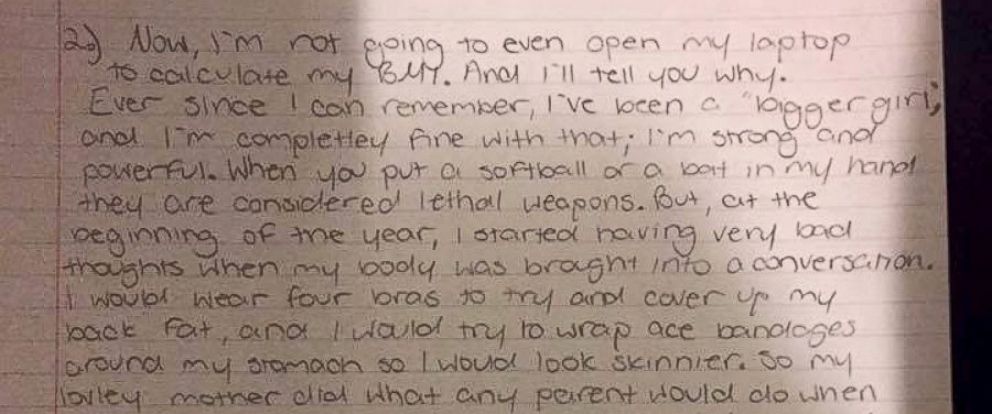 2.) Now, I'm not going to even open my laptop
to calculate my BMI. And I'll tell you why.
Ever since I can remember, I've been a "bigger girl",
and I'm completley fine with that; I'm strong and
powerful. When you put a softball or a bat in my hand
they are considered lethal weapons. But, at the
beginning of the year, I started having very bad
thoughts when my body was brought into a conversation.
I would wear four bras to try and cover up my
back fat, and I would try to wrap ace bandages
around my stomach so I would look skinnier. So my
lovley mother did what any parent would do when